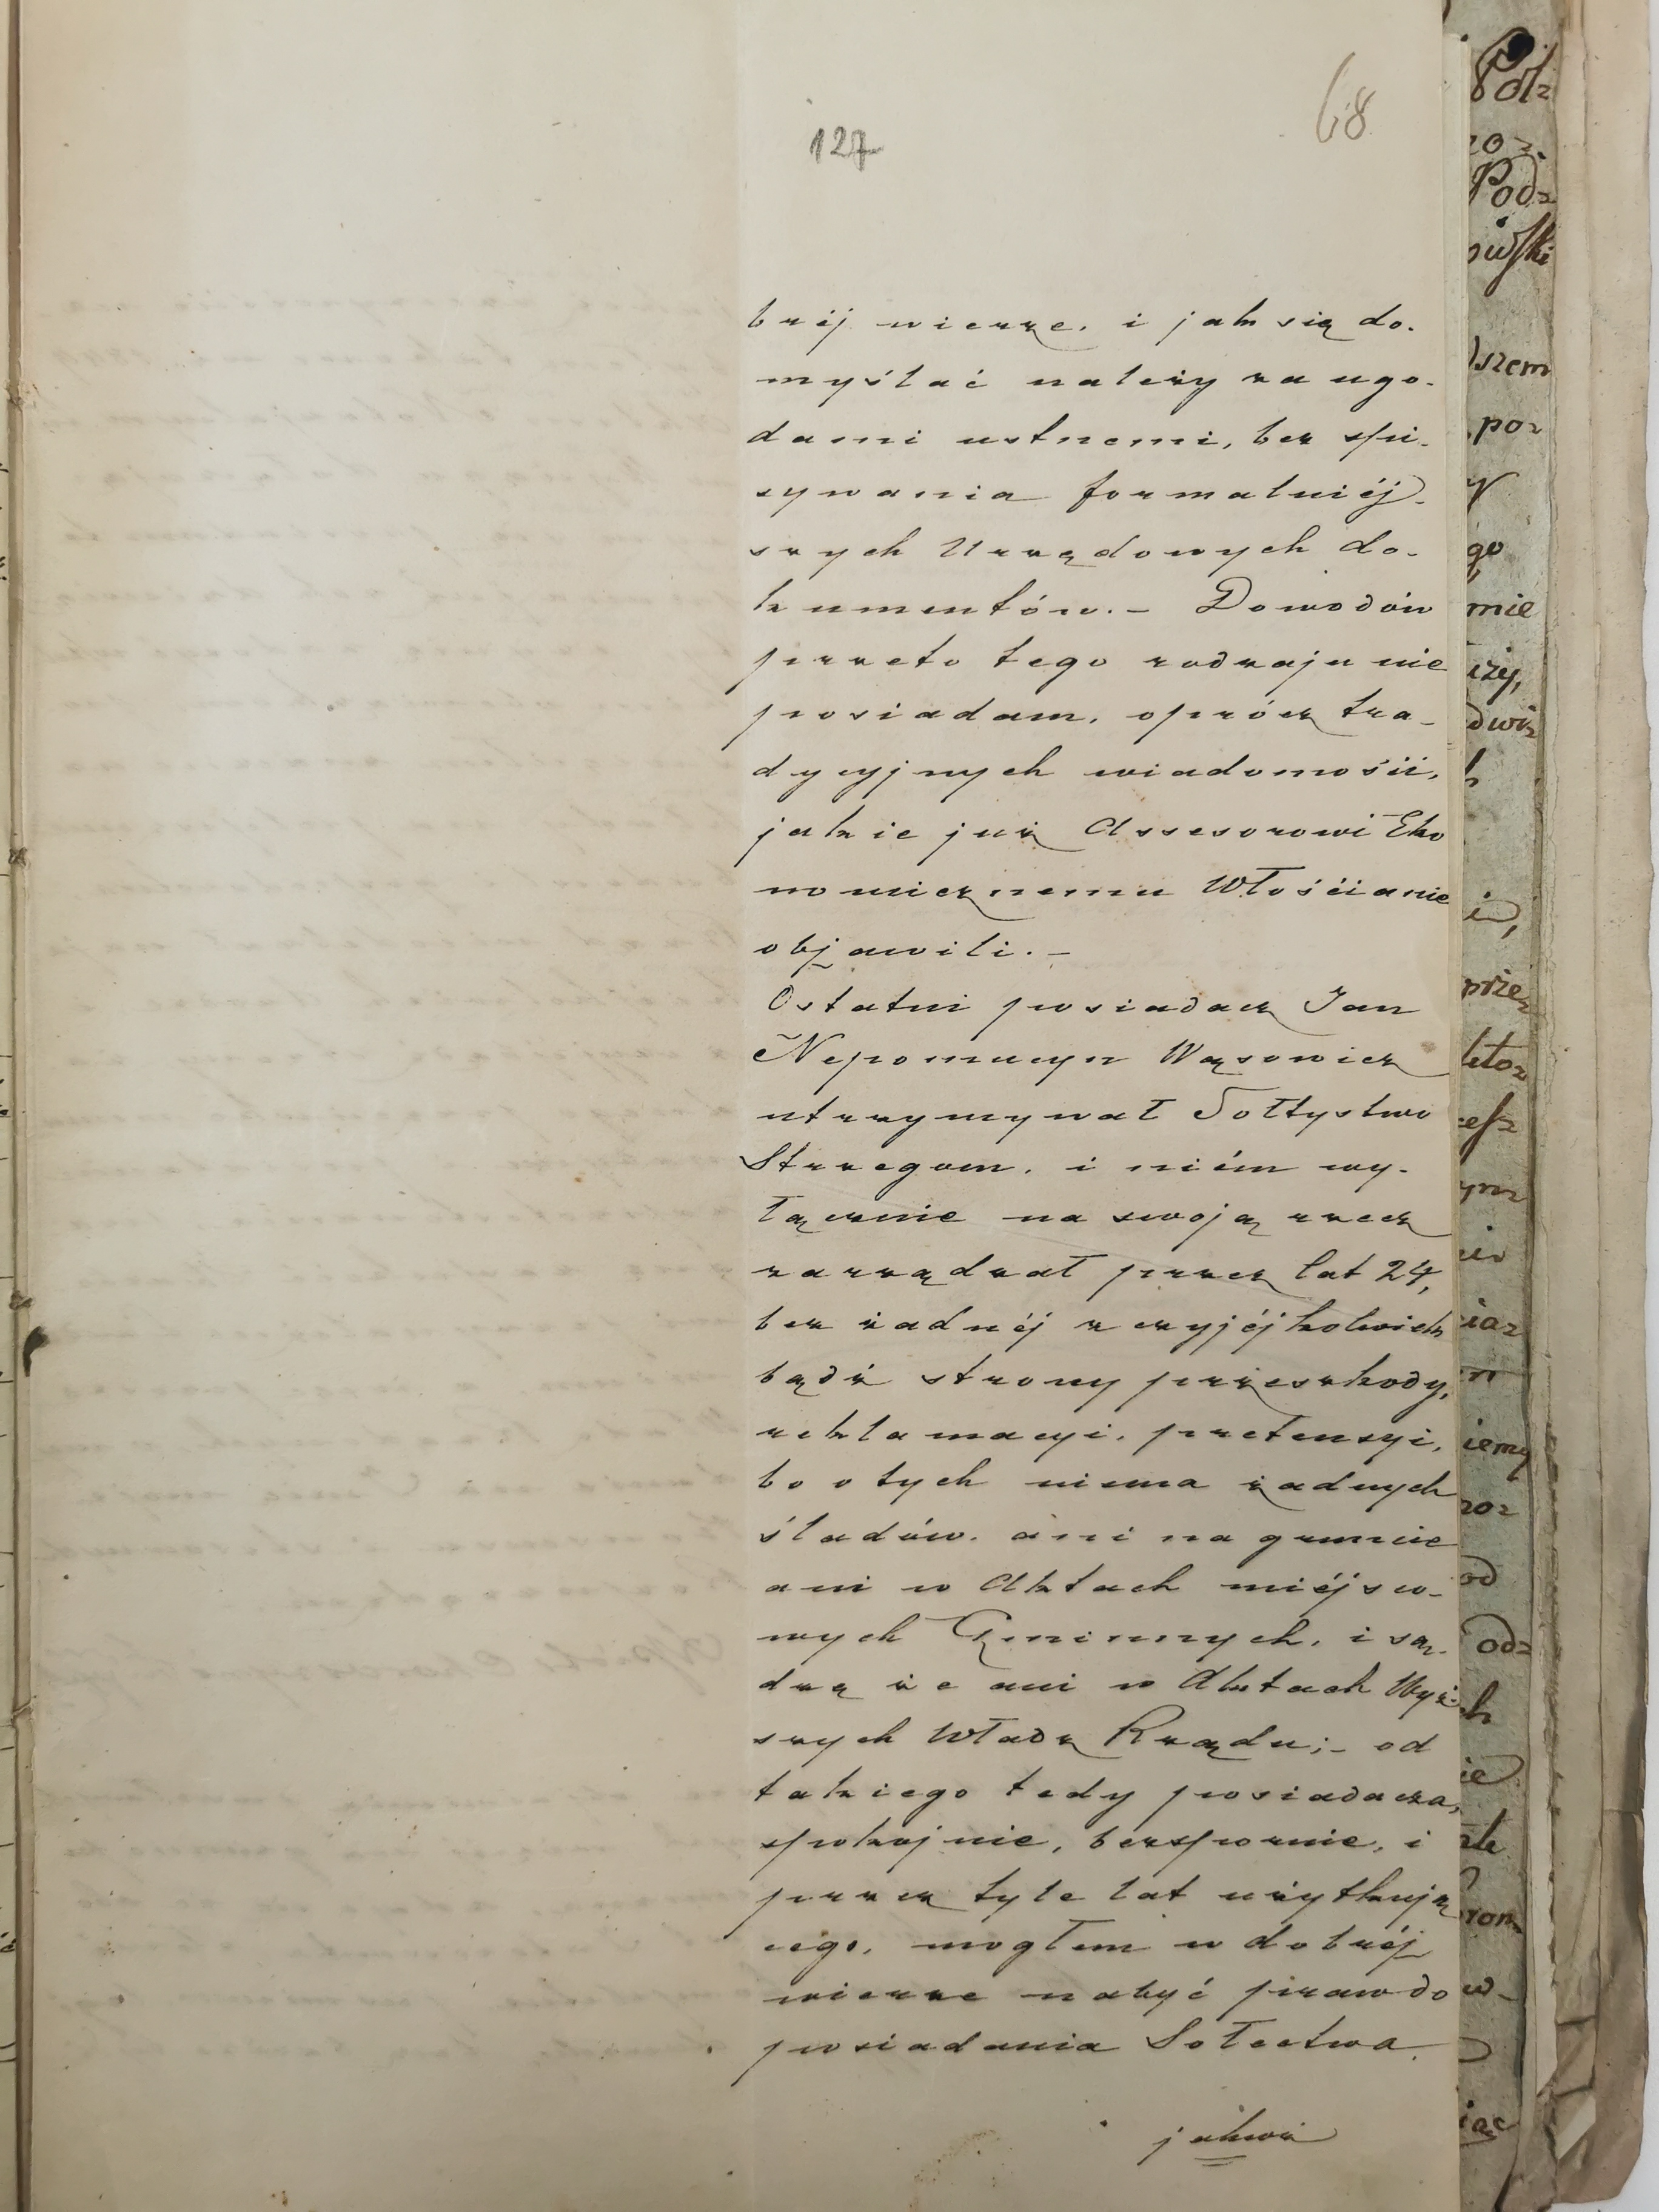 127
68
brej wierze, i jak się do-
myślać należy za ugo-
dami ustnemi, bez spi-
sywania formalniéj-
szych Urzędowych do-
kumentów. – Dowodów
przeto tego rodzaju nie
posiadam, oprócz tra-
dycyjnych wiadomości,
jakie już Assesorowi Eko
nomicznemu Włościanie
objawili. –
Ostatni posiadacz Jan
Nepomucyn Wąsowicz
utrzymywał Sołtystwo
Strzegom, i niém wy-
łącznie na swoją rzecz
zarządzał przez lat 24,
bez żadnéj z czyjéjkolwiek
bądź strony przeszkody,
reklamacyi, pretensyi,
bo o tych niema żadnych
śladów, ani na gruncie
ani w Aktach miéjsco-
wych Gminnych, i są-
dzę że ani w Aktach Wyż-
szych Władz Rządu; – od
takiego tedy posiadacza,
spokojnie, bezspornie, i
przez tyle lat użytkują
cego, mogłem w dobréj
wierze nabyć prawo do
posiadania Sołectwa
jakoż
Pod
wski
szem
po
go
mie
iży,
h
prze
ym
iemy
od
od
h
ie
w
iąc